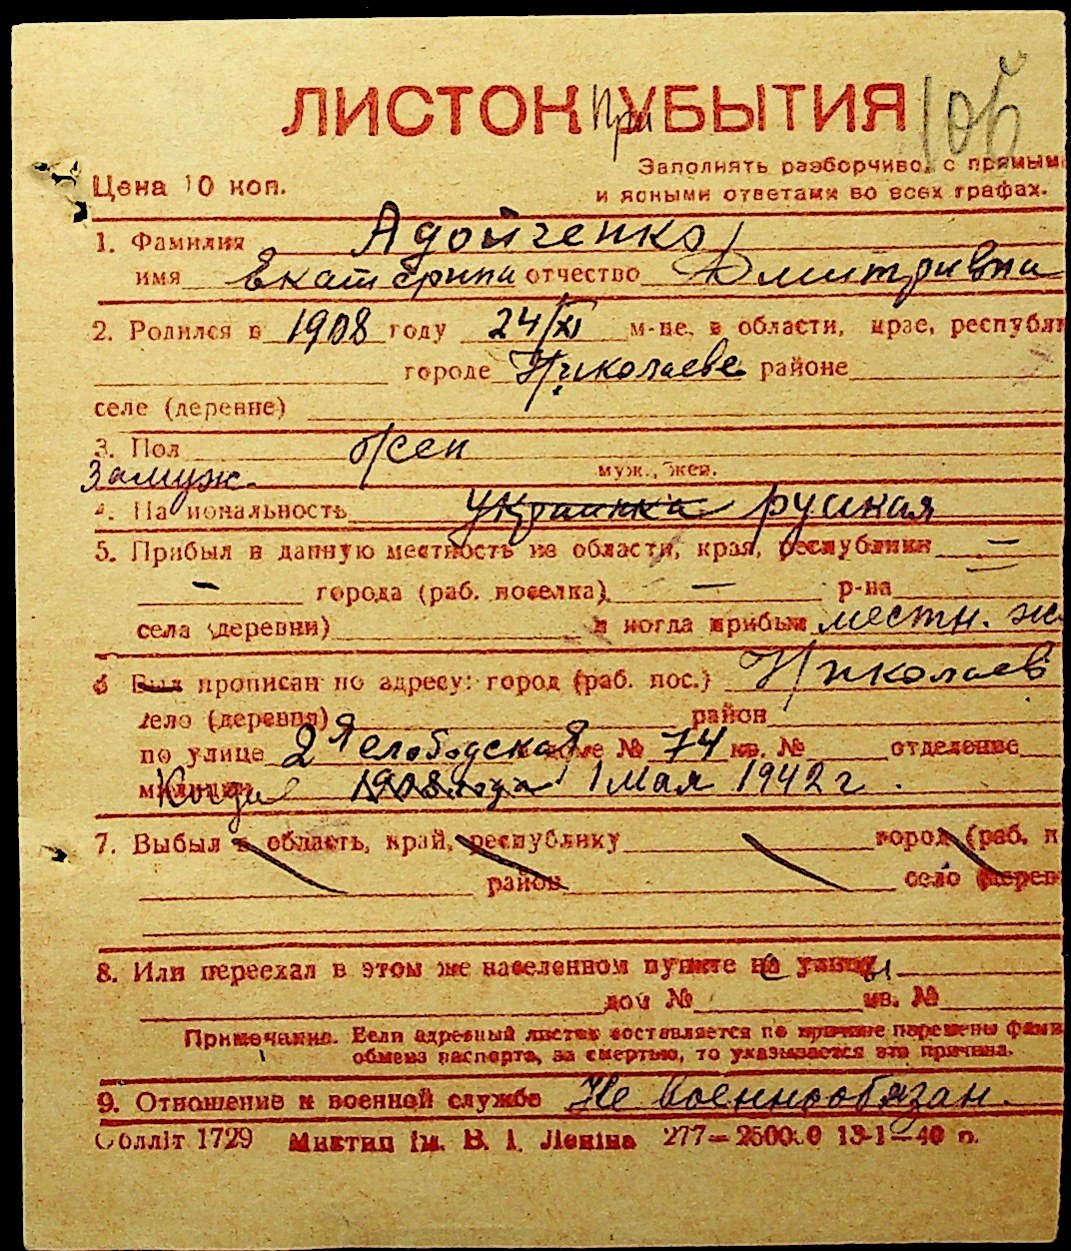 ЛИСТОК при УБЫТИЯ
Цена 10 коп.
Заполнять разборчиво, с прямыми
и ясными ответами во всех графах.
1. Фамилия Адойченко
имя Екатерина отчество Дмитривна
2. Родился в 1908 году 24/XI м-це, в области, крае, республи
городе Николаеве районе
селе (деревне)
3. Пол жен
муж., жен.
Замуж.
4. Национальность украинка руская
5. Прибыл в данную местность из области, края, республики —
— города (раб. поселка) — р-на
села (деревни) и когда прибыл местн. ж
6 Был прописан по адресу: город (раб. пос.) Николаев
село (деревня) район
по улице 2я слободская доме № 74 кв. № отделение
милиции Когда 1908 года 1 мая 1942 г.
7. Выбыл в область, край, республику город (раб. п
район село (дерев
8. Или переехал в этом же населенном пункте на улицу
с ы
дом № кв. №
Примечание. Если адресный листок составляется по причине перемены фами
обмена паспорта, за смертью, то указывается эта причина.
9. Отношение к военной службе Не военнообязан.
Облліт 1729 Миктип ім. В. І. Леніна 277—250000 13-1—40 р.